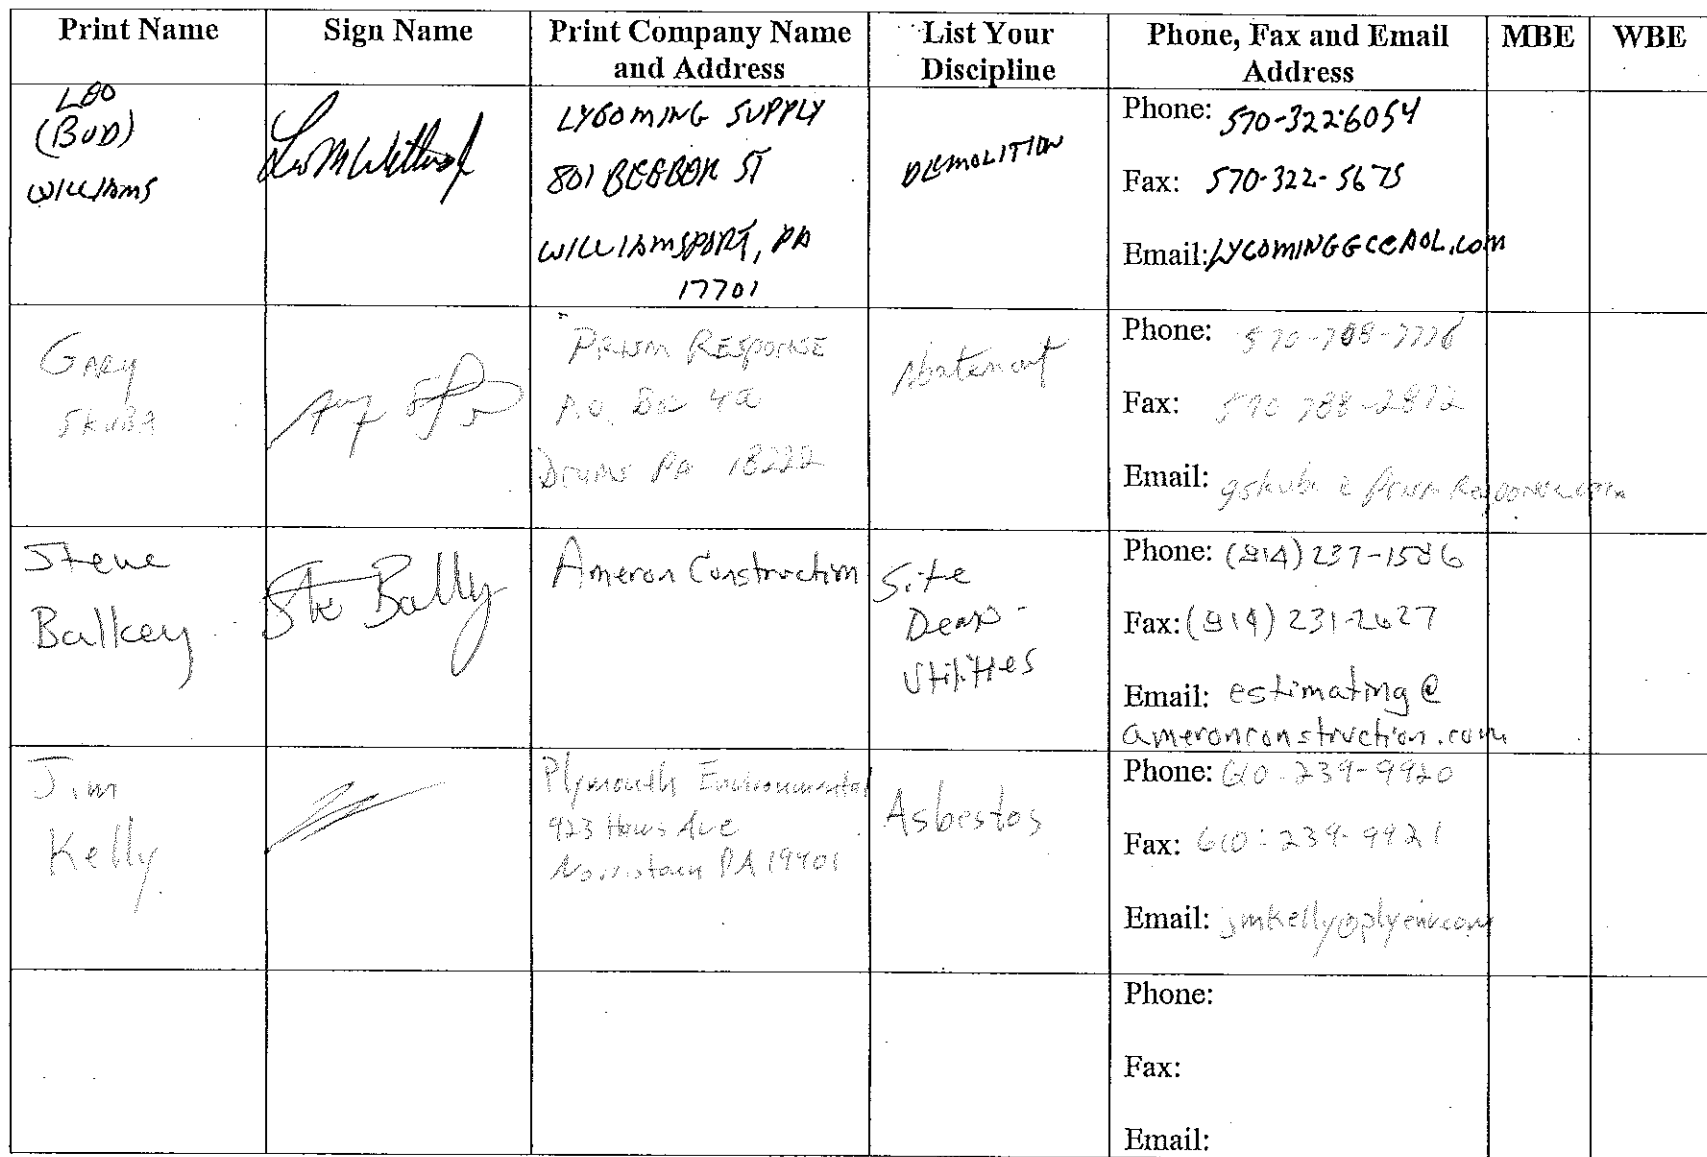 Print Name
Sign Name
Print Company Name
and Address
List Your
Discipline
Phone, Fax and Email
Address
MBE
WBE
LEO
(BUD)
WILLIAMS
LYCOMING SUPPLY
801 BEEBER ST
WILLIAMSPORT, PA
17701
DEMOLITION
Phone: 570-322-6054
Fax: 570-322-5675
Email: LYCOMINGGC@AOL.com
GARY
SKUBA
PRISM RESPONSE
P.O. Box
DRUMS PA 18222
Abatement
Phone: 570-788-7776
Fax: 570 788-2872
Email: gskuba @ PRISM Response.com
Steve
Balkey
Ameron Construction
Site
Demo -
Utilities
Phone: (814) 237-1586
Fax: (814) 231-2627
Email: estimating@
ameronconstruction.com
Jim
Kelly
Plymouth Environmental
923 Haws Ave
Norristown PA 19401
Asbestos
Phone: 610-239-9920
Fax: 610-239-9921
Email: jmkelly@plyenv.com
Phone:
Fax:
Email: